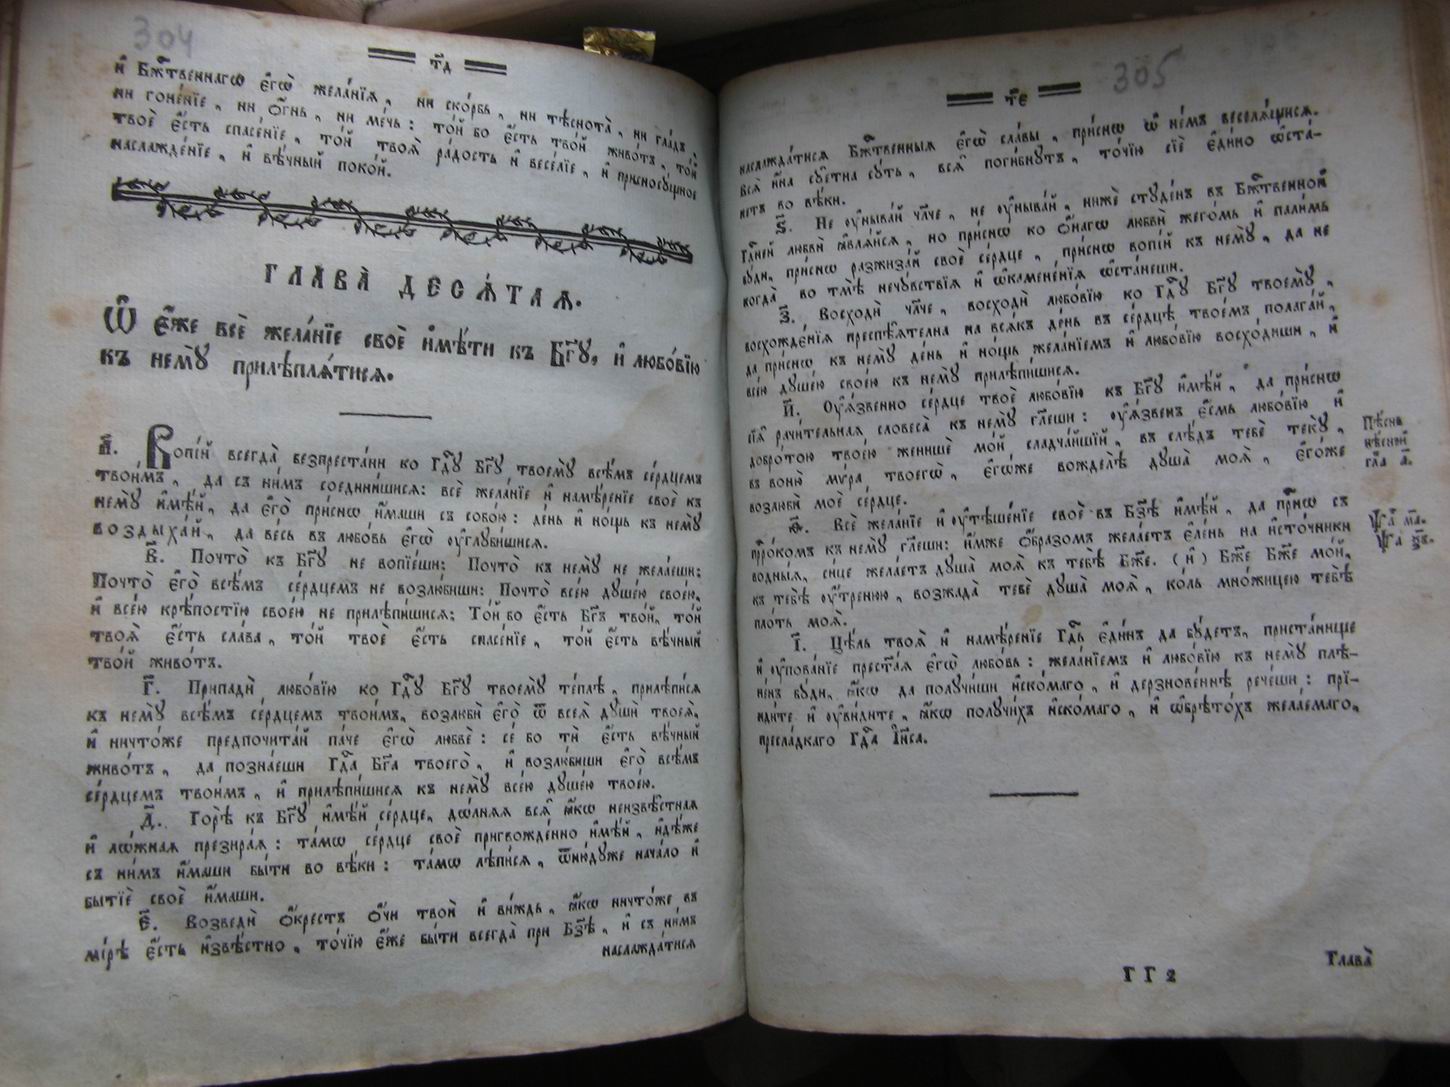 304
т҃д
и҆ Бж҃твеннагѡ є҆гѡ̀ жела́нїѧ, ни ско́рбь, ни тѣснота̀, ни гла́дъ,
ни гоне́нїе, ни ѻ҆́гнь, ни ме́чь: то́й бо є҆́сть тво́й живо́тъ, то́й
твоѐ є҆́сть спасе́нїе, то́й твоѧ̀ ра́дость и҆ весе́лїе, и҆ присносꙋ́щное
наслажде́нїе, и҆ вѣ́чный поко́й.
ГЛАВА̀ ДЕСѦ́ТАѦ.
Ѽ є҆́же всѐ жела́нїе своѐ и҆мѣ́ти къ Бг҃ꙋ, и҆ любо́вїю
къ немꙋ̀ прилѣплѧ́тисѧ.
а҃. Вопі́й всегда̀ безпреста́ни ко Гд҃ꙋ Бг҃ꙋ твоемꙋ̀ всѣ́мъ се́рдцемъ
твои́мъ, да съ ни́мъ соедини́шисѧ: всѐ жела́нїе и҆ намѣ́ренїе своѐ къ
немꙋ̀ и҆мѣ́й, да є҆го̀ при́снѡ и҆́маши съ собо́ю: де́нь и҆ но́щь къ немꙋ̀
воздыха́й, да ве́сь въ любо́вь є҆гѡ̀ ᲂу҆глꙋби́шисѧ.
в҃. Почто̀ къ Бг҃ꙋ не вопїе́ши; Почто̀ къ немꙋ̀ не жела́еши;
Почто̀ є҆го̀ всѣ́мъ се́рдцемъ не возлю́биши; Почто̀ все́ю дꙋше́ю свое́ю,
и҆ все́ю крѣ́постїю свое́ю не прилѣпи́шисѧ; То́й бо є҆́сть Бг҃ъ тво́й, то́й
твоѧ̀ є҆́сть сла́ва, то́й твоѐ є҆́сть спасе́нїе, то́й є҆́сть вѣ́чный
тво́й живо́тъ.
г҃. Припадѝ любо́вїю ко Гд҃ꙋ Бг҃ꙋ твоемꙋ̀ те́плѣ, прилѣпи́сѧ
къ немꙋ̀ всѣ́мъ се́рдцемъ твои́мъ, возлюбѝ є҆го̀ ѿ всеѧ̀ дꙋшѝ твоеѧ̀,
и҆ ничто́же предпочита́й па́че є҆гѡ̀ любвѐ: се́ бо тѝ є҆́сть вѣ́чный
живо́тъ, да позна́еши Гд҃а Бг҃а твоего̀, и҆ возлю́биши є҆го̀ всѣ́мъ
се́рдцемъ твои́мъ, и҆ прилѣпи́шисѧ къ немꙋ̀ все́ю дꙋше́ю твое́ю.
д҃. Горѣ̀ къ Бг҃ꙋ и҆мѣ́й се́рдце, дѡ́льнаѧ всѧ̑ ꙗ҆́кѡ неизвѣ́стнаѧ
и҆ лѡ́жнаѧ презира́ѧ: та́мѡ се́рдце своѐ пригвожде́нно и҆мѣ́й, и҆дѣ́же
съ ни́мъ и҆́маши бы́ти во вѣ́ки: та́мѡ лѣпи́сѧ, ѿню́дꙋже нача́ло и҆
бытїѐ своѐ и҆́маши.
є҃. Возведѝ ѻ҆́крестъ ѻ҆́чи твоѝ и҆ ви́ждь, ꙗ҆́кѡ ничто́же въ
мі́рѣ є҆́сть и҆звѣ́стно, то́чїю є҆́же бы́ти всегда̀ при Бз҃ѣ, и҆ съ ни́мъ
наслажда́тисѧ
305
т҃е
наслажда́тисѧ Бж҃твенныѧ є҆гѡ̀ сла́вы, при́снѡ ѡ҆ не́мъ веселѧ́щисѧ.
Всѧ̑ и҆́на сꙋ́етна сꙋ́ть, всѧ̑ поги́бнꙋтъ, то́чїю сїѐ є҆ди́но ѡ҆ста́-
нетъ во вѣ́ки.
ѕ҃. Не ᲂу҆ныва́й чл҃че, не ᲂу҆ныва́й, нижѐ стꙋде́нъ въ Бж҃твенной
Гд҃ней любвѝ ꙗ҆влѧ́йсѧ, но при́снѡ ко ѻ҆́нагѡ любвѝ жего́мь и҆ пали́мь
бꙋ́ди, при́снѡ разжиза́й своѐ се́рдце, при́снѡ вопі́й къ немꙋ̀, да не
когда̀ во тмѣ̀ нечꙋ́вствїѧ и҆ ѡ҆камене́нїѧ ѡ҆ста́неши.
з҃. Восходѝ чл҃че, восходѝ любо́вїю ко Гд҃ꙋ Бг҃ꙋ твоемꙋ̀,
восхожде́нїѧ преспѣ́ѧтелна на всѧ́къ де́нь въ се́рдцѣ твое́мъ полага́й,
да при́снѡ къ немꙋ̀ де́нь и҆ но́щь жела́нїемъ и҆ любо́вїю восхо́диши, и҆
все́ю дꙋше́ю свое́ю къ немꙋ̀ прилѣпи́шисѧ.
и҃. Оу҆ѧ́звенно се́рдце твоѐ любо́вїю къ Бг҃ꙋ и҆мѣ́й, да при́снѡ
сїѧ̑ рачи́тельнаѧ словеса̀ къ немꙋ̀ гл҃еши: ᲂу҆ѧ́звенъ є҆́смь любо́вїю и҆
добро́тою твое́ю женишѐ мо́й сладча́йшїй, въ слѣ́дъ тебѐ текꙋ̀,
въ воню̀ мѵ́ра твоегѡ̀, є҆гѡ́же вожделѣ̀ дꙋша̀ моѧ̀, є҆го́же
возлюбѝ моѐ се́рдце.
Пѣ́снь
пѣ́сней
гл҃а а҃.
ѳ҃. Всѐ жела́нїе и҆ ᲂу҆тѣше́нїе своѐ въ Бз҃ѣ и҆мѣ́й, да при́снѡ съ
прⷪ҇ро́комъ къ немꙋ̀ гл҃еши: и҆́мже ѻ҆́бразомъ жела́етъ є҆ле́нь на и҆сто́чники
водны́ѧ, си́це жела́етъ дꙋша̀ моѧ̀ къ тебѣ̀ Бж҃е. (и҆) Бж҃е Бж҃е мо́й,
къ тебѣ̀ ᲂу҆́тренюю, возжада̀ тебѐ дꙋша̀ моѧ̀, ко́ль мно́жицею тебѣ̀
пло́ть моѧ̀.
Ѱл҃а ма҃.
Ѱл҃а ѯв҃.
і҃. Цѣ́ль твоѧ̀ и҆ намѣ́ренїе Гд҃ь є҆ди́нъ да бꙋ́детъ, приста́нище
и҆ ᲂу҆пова́нїе прест҃а́ѧ є҆гѡ̀ любо́вь: жела́нїемъ и҆ любо́вїю къ немꙋ̀ плѣ-
не́нъ бꙋ́ди, ꙗ҆́кѡ да полꙋ́чиши и҆ско́маго, и҆ дерзнове́ннѣ рече́ши: прї-
иди́те и҆ ᲂу҆ви́дите, ꙗ҆́кѡ полꙋчи́хъ и҆ско́маго, и҆ ѡ҆брѣто́хъ жела́емаго,
пресла́дкаго Гд҃а І҆и҃са.
ГГ 2
Глава̀